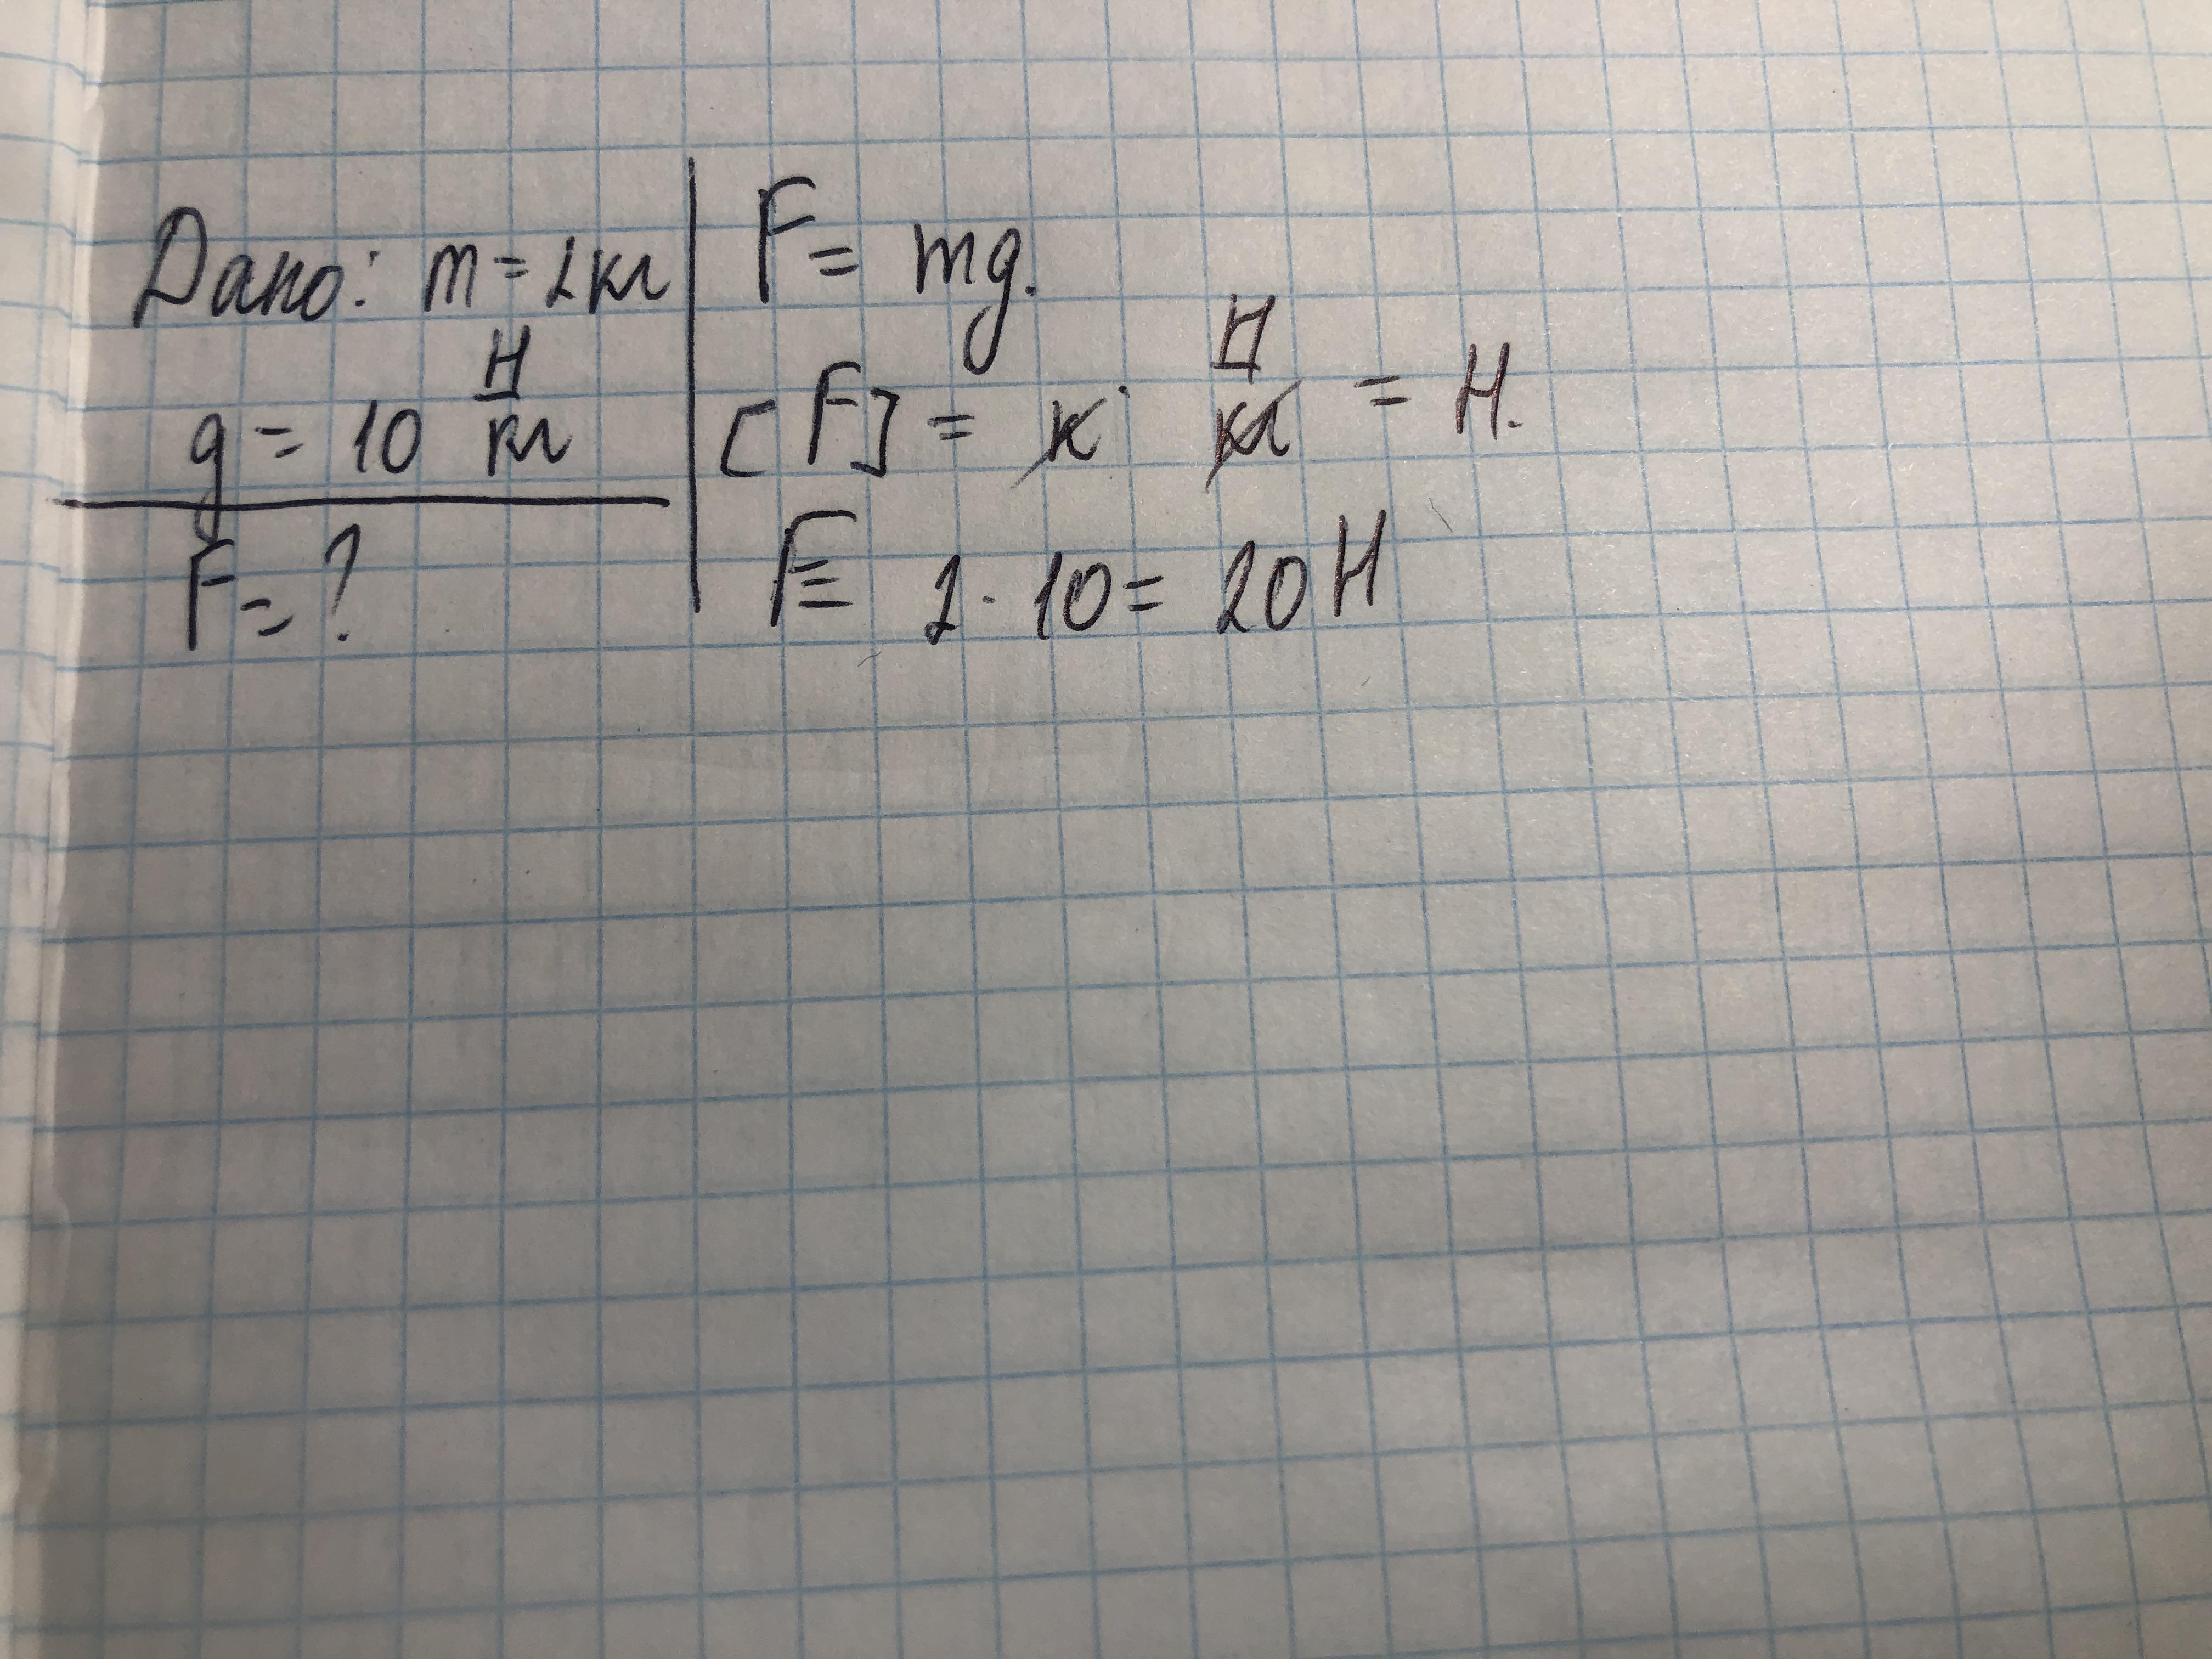 Дано: m = 2 кг
g = 10 Н/кг
F = ?
F = mg.
[F] = к · Н/кг = Н.
F = 2 · 10 = 20 Н